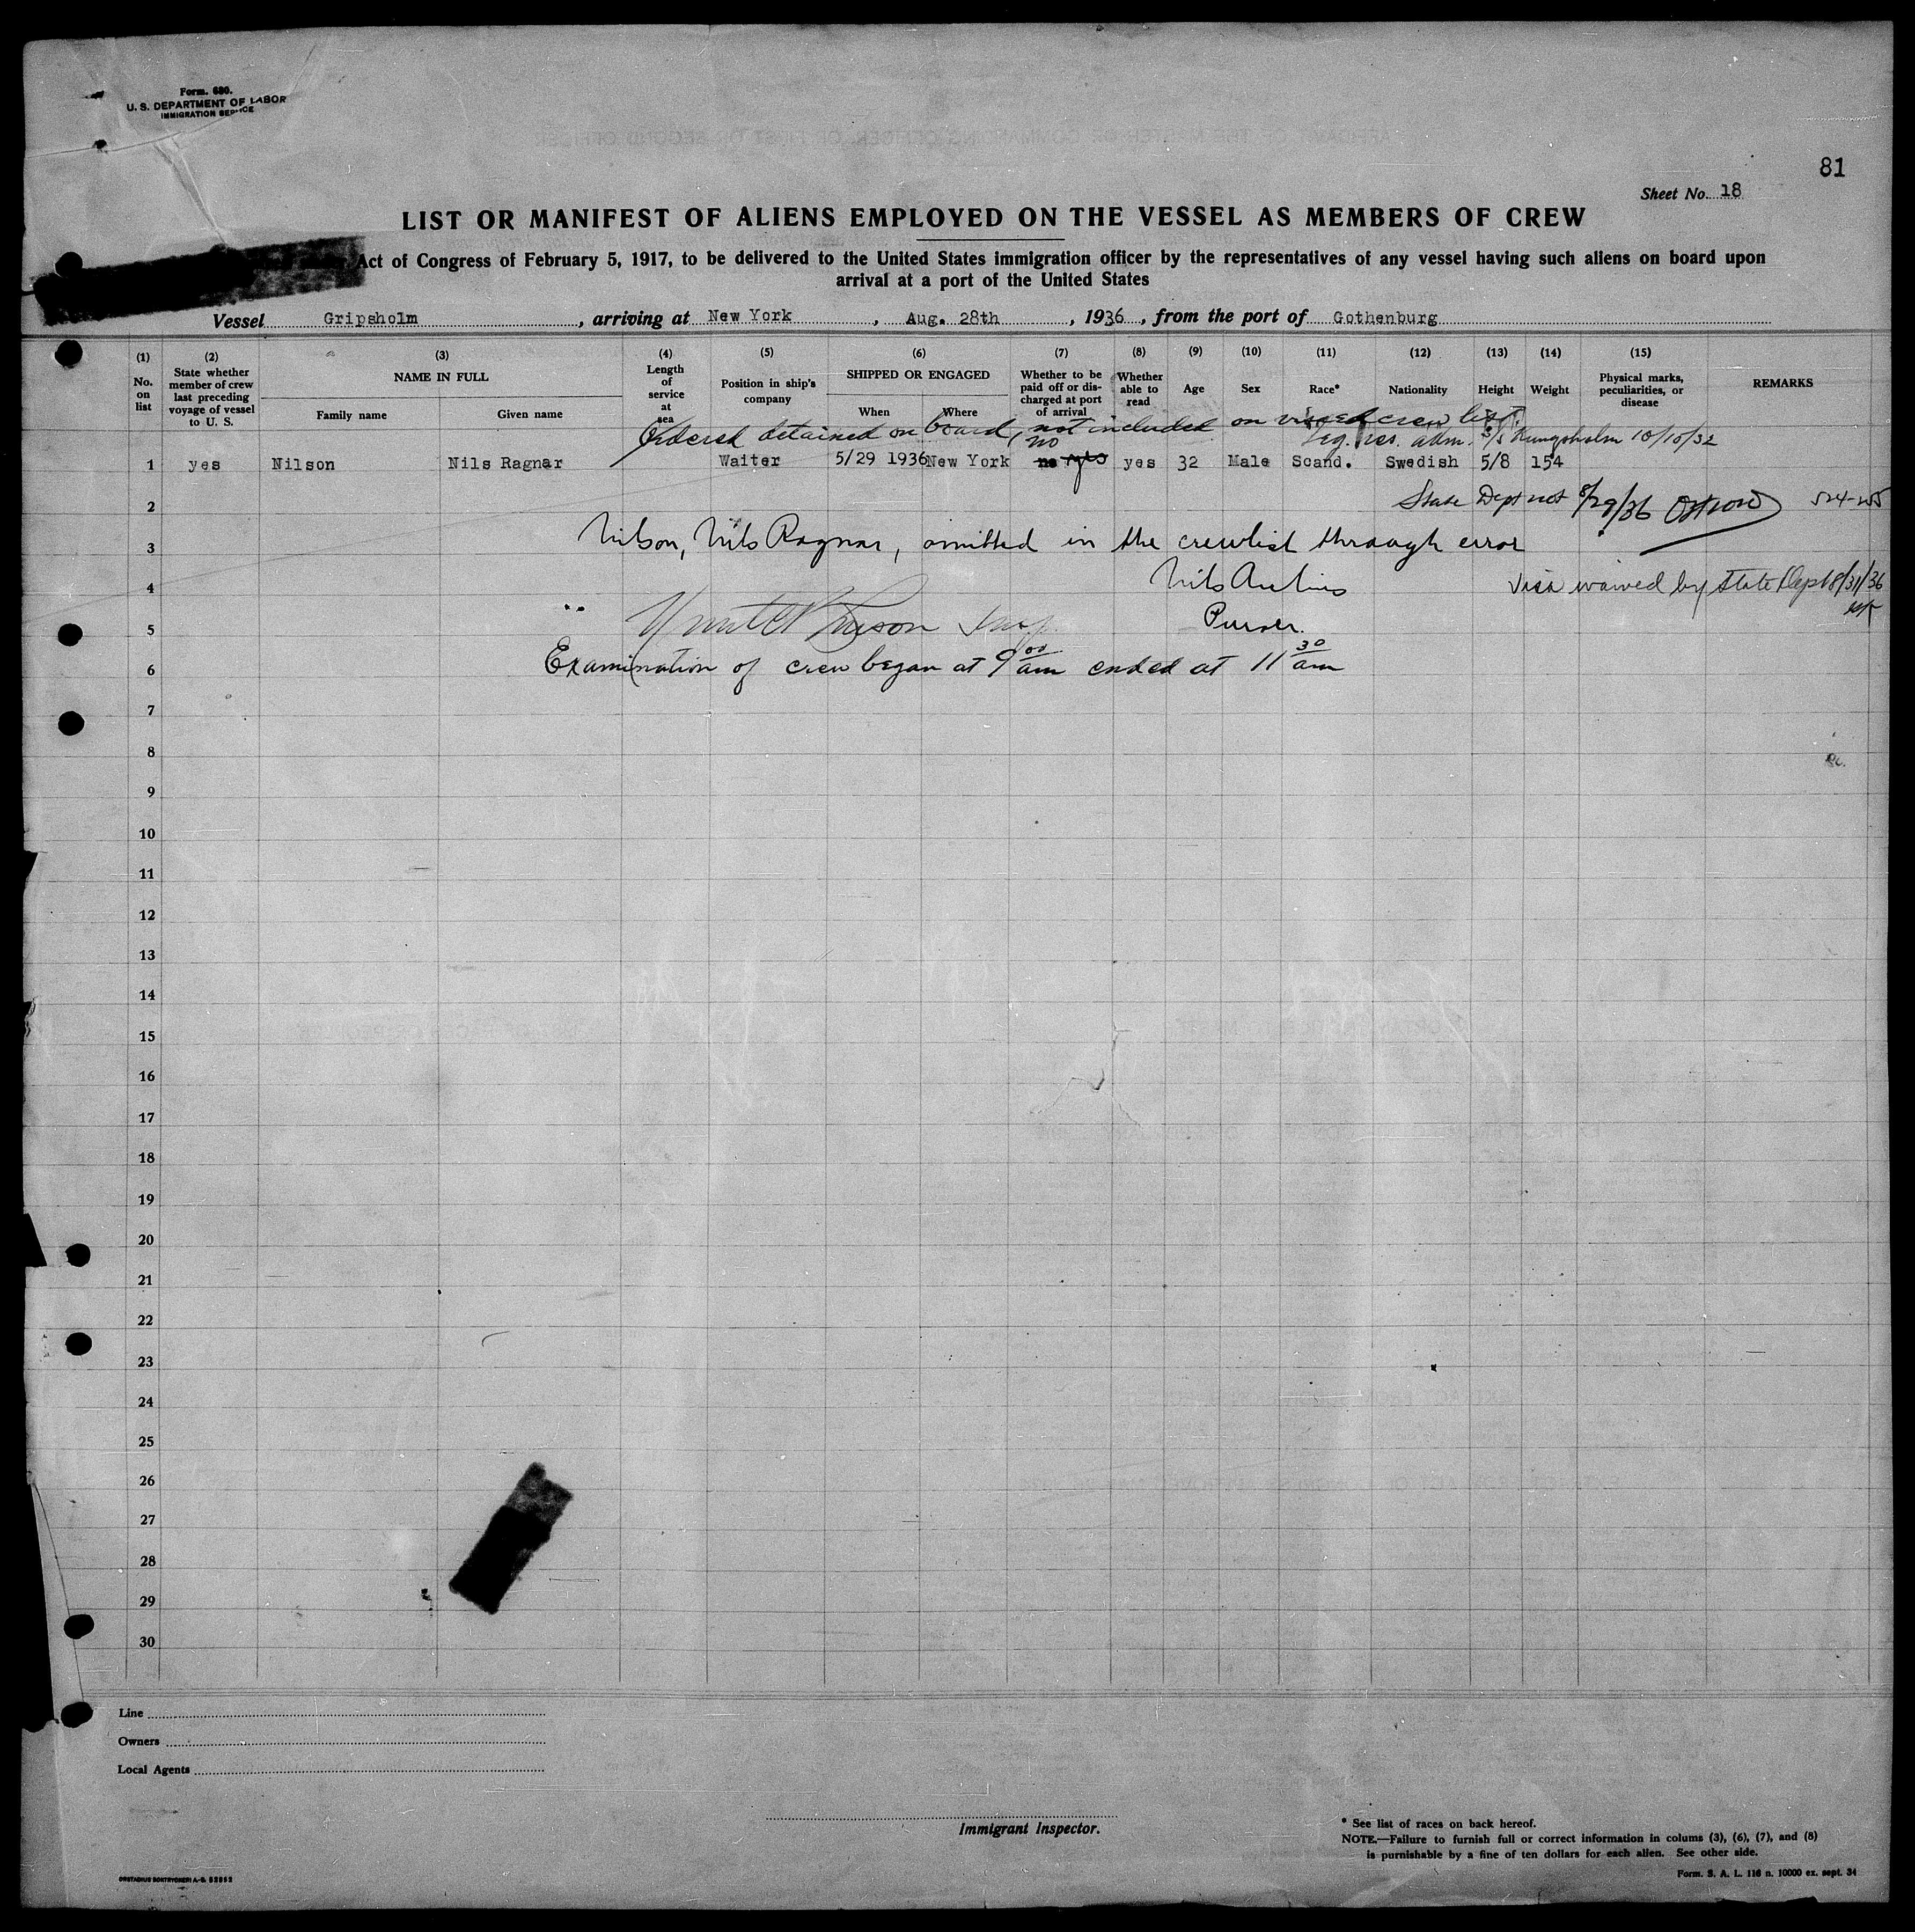 Form. 680.
U. S. DEPARTMENT OF LABOR
IMMIGRATION SERVICE
81
Sheet No. 18
LIST OR MANIFEST OF ALIENS EMPLOYED ON THE VESSEL AS MEMBERS OF CREW
Act of Congress of February 5, 1917, to be delivered to the United States immigration officer by the representatives of any vessel having such aliens on board upon
arrival at a port of the United States
Vessel Gripsholm, arriving at New York, Aug. 28th, 1936, from the port of Gothenburg
(1) (2) (3) (4) (5) (6) (7) (8) (9) (10) (11) (12) (13) (14) (15)
No. on list
State whether member of crew last preceding voyage of vessel to U. S.
NAME IN FULL
Family name Given name
Length of service at sea
Position in ship's company
SHIPPED OR ENGAGED
When Where
Whether to be paid off or discharged at port of arrival
Whether able to read
Age
Sex
Race*
Nationality
Height
Weight
Physical marks, peculiarities, or disease
REMARKS
Ordered detained on board, not included on visaed crew list.
Leg. res. adm. S/S Kungsholm 10/10/32
no
1 yes Nilson Nils Ragnar Waiter 5/29 1936 New York no yes yes 32 Male Scand. Swedish 5/8 154
2 State Dept not 8/29/36
3 Nilson, Nils Ragnar, omitted in the crewlist through error
4 Visa waived by State Dept 8/31/36
5 Purser.
6 Examination of crew began at 9 00 am ended at 11 30 am
7
8
9
10
11
12
13
14
15
16
17
18
19
20
21
22
23
24
25
26
27
28
29
30
Line
Owners
Local Agents
Immigrant Inspector.
* See list of races on back hereof.
NOTE.—Failure to furnish full or correct information in colums (3), (6), (7), and (8)
is purnishable by a fine of ten dollars for each alien. See other side.
Form. S. A. L. 116 n. 10000 ex. sept. 34